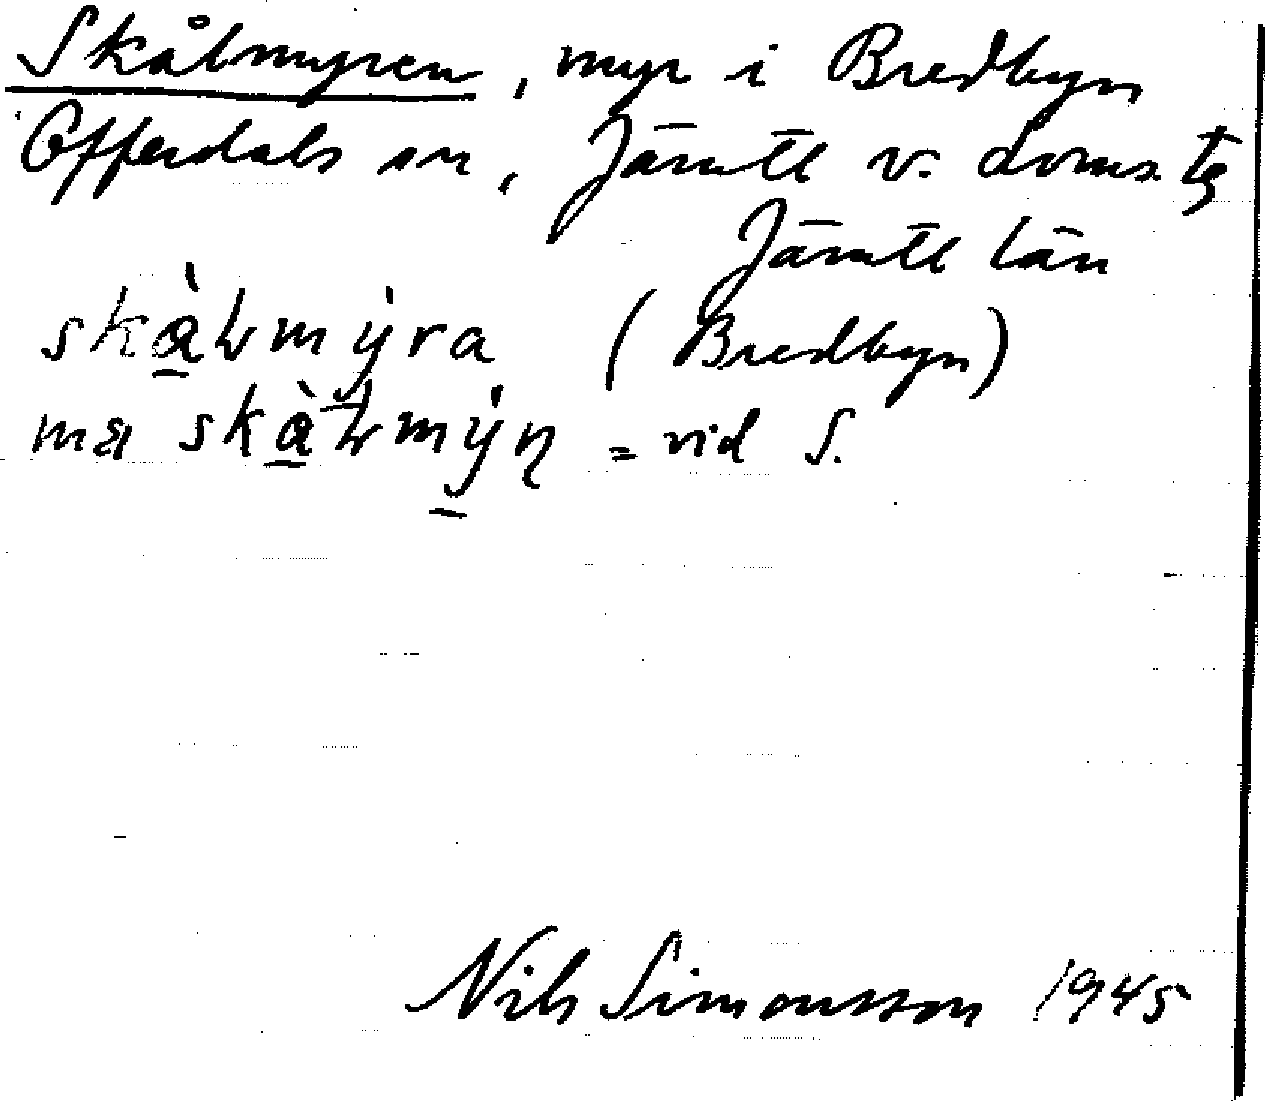 Skålmyren, myr i Bredbyn
Offerdals sn, Jämtl v. doms. tg
Jämtl län
skàlmýra (Bredbyn)
skàlmýn = vid S.
Nils Simonsson 1945